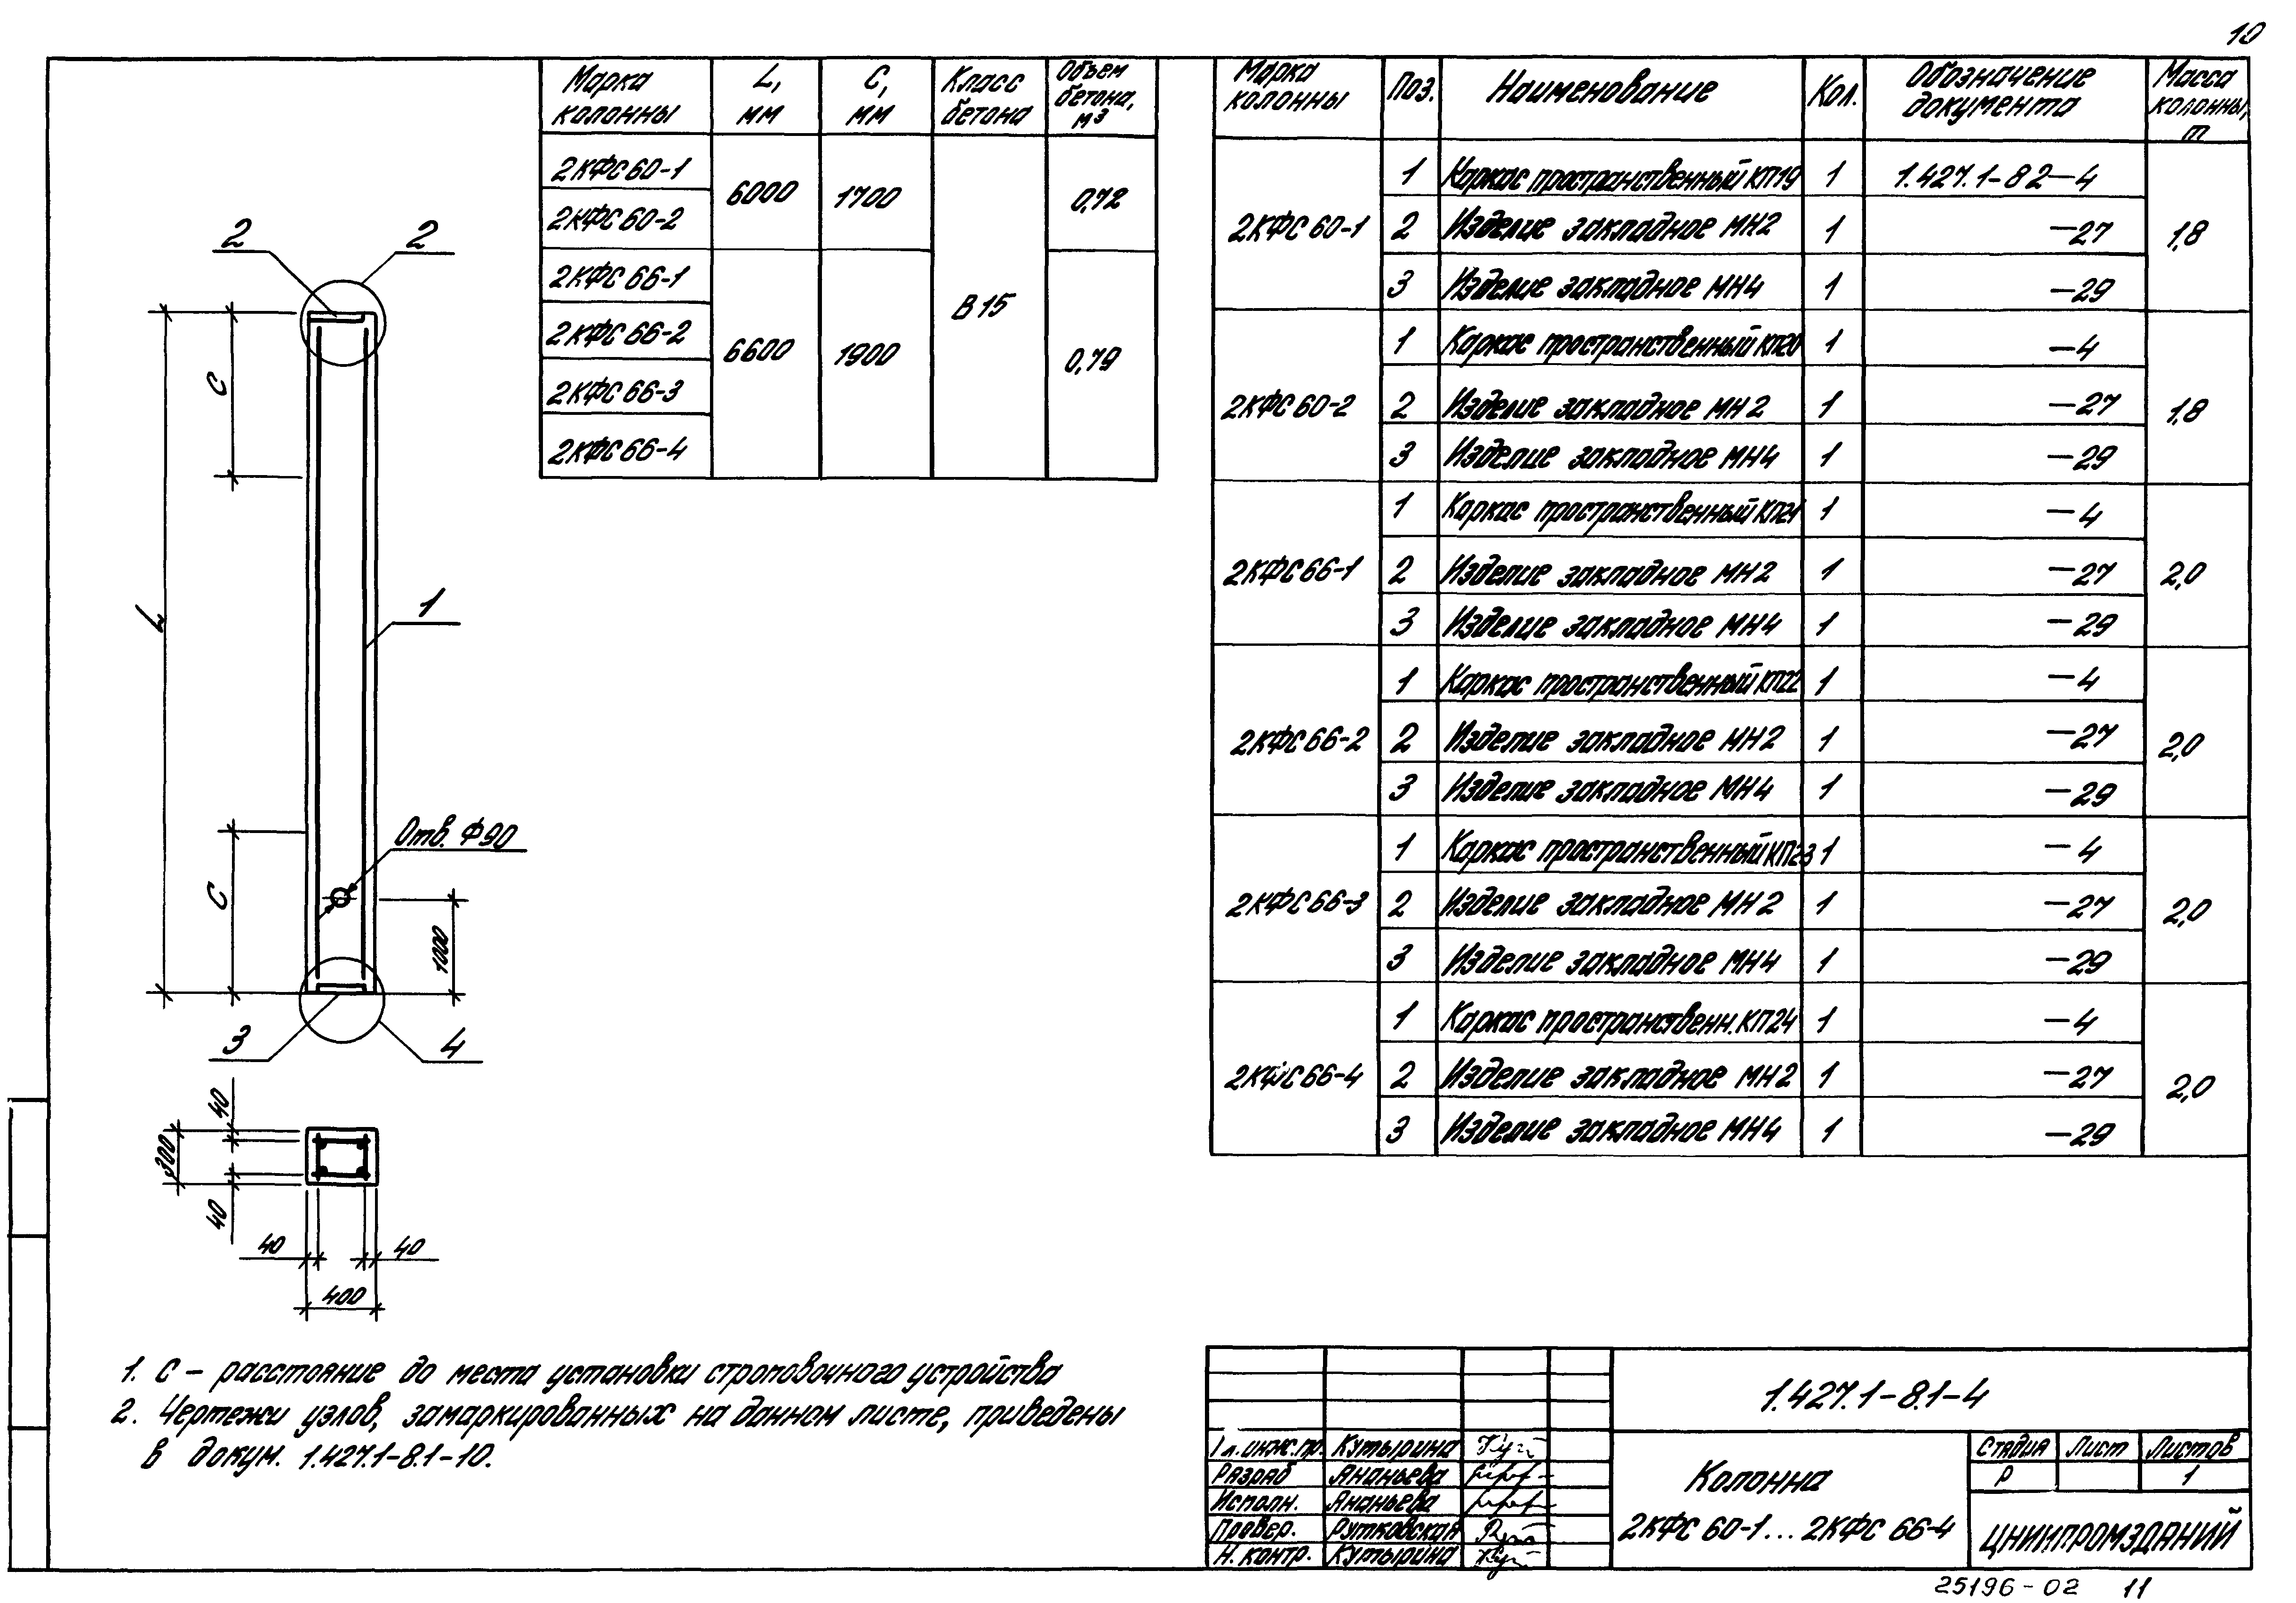 10
Марка колонны | L, мм | С, мм | Класс бетона | Объем бетона, м³
2КФС60-1 | 6000 | 1700 | В15 | 0,72
2КФС60-2
2КФС66-1 | 6600 | 1900 | 0,79
2КФС66-2
2КФС66-3
2КФС66-4
Марка колонны | Поз. | Наименование | Кол. | Обозначение документа | Масса колонны, т
2КФС60-1 | 1 | Каркас пространственный КП19 | 1 | 1.427.1-8 2-4 | 1,8
2 | Изделие закладное МН2 | 1 | -27
3 | Изделие закладное МН4 | 1 | -29
2КФС60-2 | 1 | Каркас пространственный КП20 | 1 | -4 | 1,8
2 | Изделие закладное МН2 | 1 | -27
3 | Изделие закладное МН4 | 1 | -29
2КФС66-1 | 1 | Каркас пространственный КП21 | 1 | -4 | 2,0
2 | Изделие закладное МН2 | 1 | -27
3 | Изделие закладное МН4 | 1 | -29
2КФС66-2 | 1 | Каркас пространственный КП22 | 1 | -4 | 2,0
2 | Изделие закладное МН2 | 1 | -27
3 | Изделие закладное МН4 | 1 | -29
2КФС66-3 | 1 | Каркас пространственный КП23 | 1 | -4 | 2,0
2 | Изделие закладное МН2 | 1 | -27
3 | Изделие закладное МН4 | 1 | -29
2КФС66-4 | 1 | Каркас пространственн. КП24 | 1 | -4 | 2,0
2 | Изделие закладное МН2 | 1 | -27
3 | Изделие закладное МН4 | 1 | -29
2 2
С
L
1
Отв. Ф90
С
1000
3 4
40
300
40
40 40
400
1. С - расстояние до места установки строповочного устройства
2. Чертежи узлов, замаркированных на данном листе, приведены
в докум. 1.427.1-8.1-10.
1.427.1-8.1-4
Гл.инж.пр. Кутырина
Разраб Ананьева
Исполн. Ананьева
Провер. Рутковская
Н. контр. Кутырина
Колонна
2КФС 60-1... 2КФС 66-4
Стадия | Лист | Листов
Р | | 1
ЦНИИПРОМЗДАНИЙ
25196-02 11